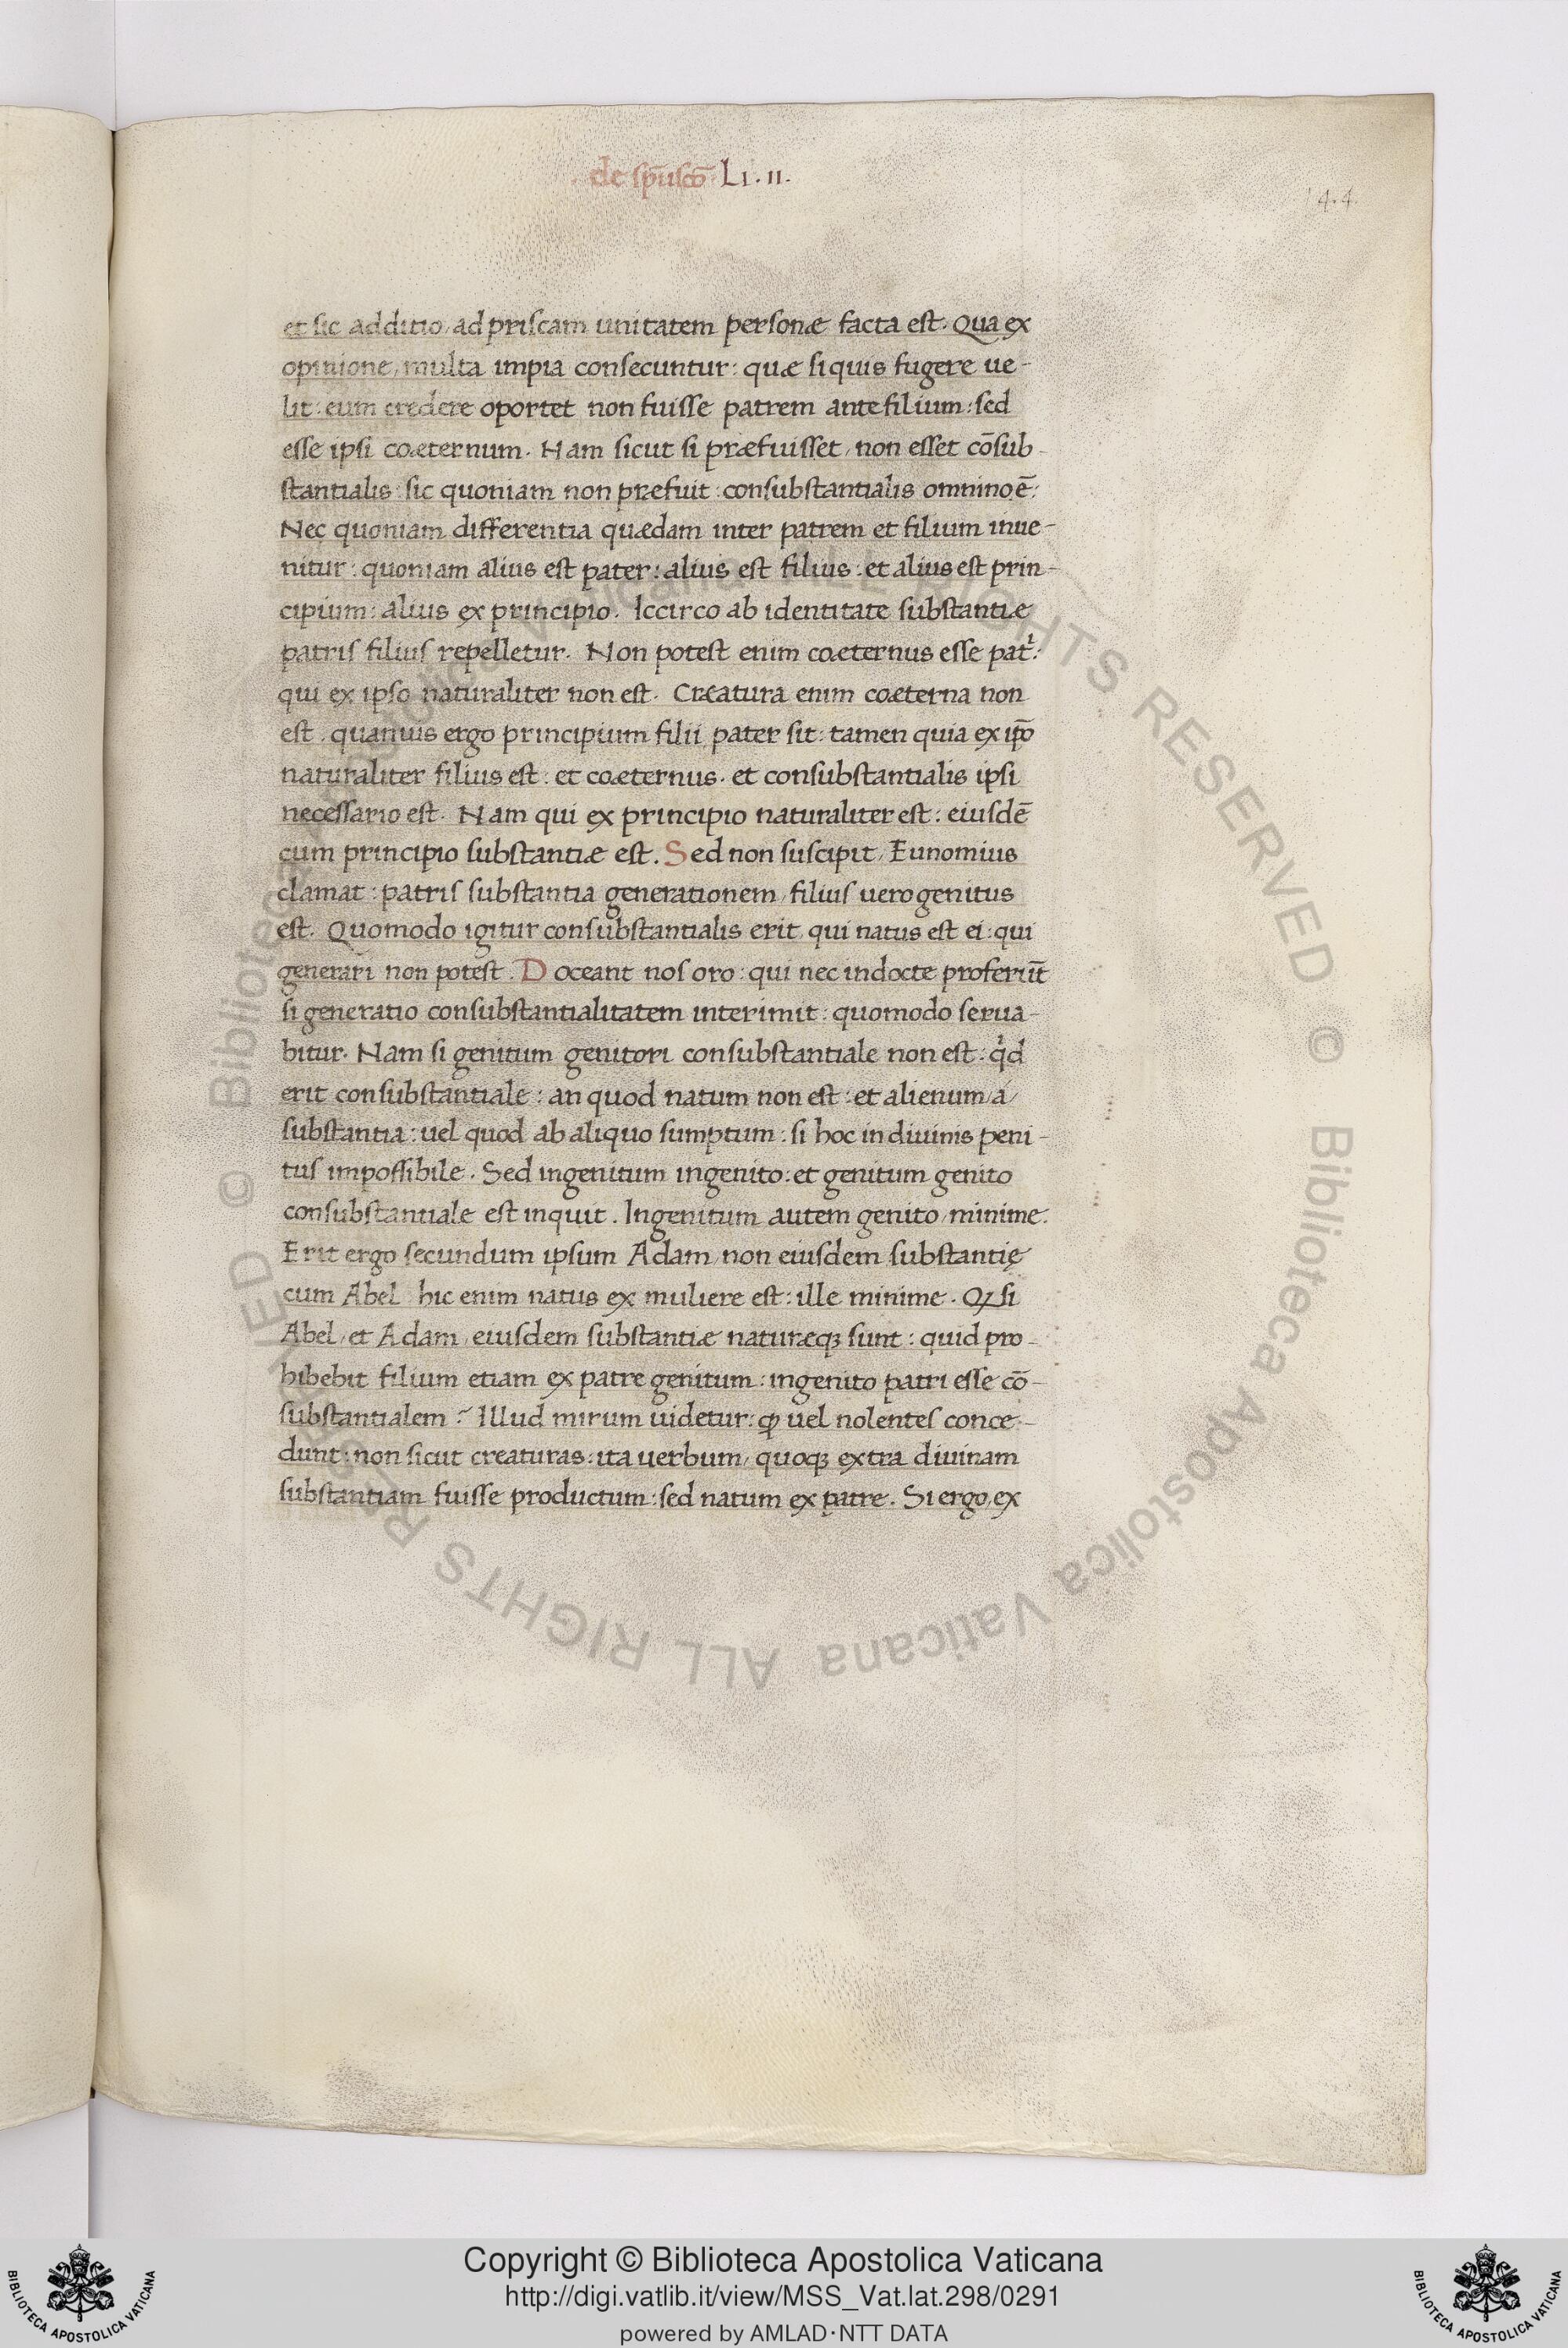 de sp̄usco̅ Lı.ıı.
144.
et sic additio, ad priscam unitatem personæ facta est. Qua ex
opinione, multa impia consecuntur: quæ si quis fugere ue-
lit: eum credere oportet non fuisse patrem ante filium: sed
esse ipsi coæternum. Nam sicut si præfuisset, non esset cōsub-
stantialis: sic quoniam non præfuit: consubstantialis omnino ē:
Nec quoniam differentia quædam inter patrem et filium inue-
nitur: quoniam alius est pater: alius est filius: et alius est prin-
cipium: alius ex principio. Iccirco ab identitate substantiæ
patris filius repelletur. Non potest enim coæternus esse patⁱ:
qui ex ipso naturaliter non est. Cræatura enim coæterna non
est. quanuis ergo principium filii, pater sit: tamen quia ex ip̄o
naturaliter filius est: et coæternus. et consubstantialis ipsi
necessario est. Nam qui ex principio naturaliter est: eiusdē
cum principio substantiæ est. Sed non suscipit, Eunomius
clamat: patris substantia generationem, filius uero genitus
est. Quomodo igitur consubstantialis erit, qui natus est ei: qui
generari non potest. Doceant nos oro: qui nec indocte proferūt
si generatio consubstantialitatem interimit: quomodo serua-
bitur. Nam si genitum genitori consubstantiale non est: qⁱd
erit consubstantiale: an quod natum non est: et alienum, á,
substantia: uel quod ab aliquo sumptum: si hoc in diuinis peni-
tus impossibile. Sed ingenitum ingenito: et genitum genito
consubstantiale est inquit. Ingenitum autem genito, minime.
Erit ergo secundum ipsum Adam, non eiusdem substantię
cum Abel hic enim natus ex muliere est: ille minime. Qꝫ si
Abel, et Adam, eiusdem substantiæ naturæqꝫ sunt: quid pro-
hibebit filium etiam ex patre genitum: ingenito patri esse cō-
substantialem? Illud mirum uidetur: ꝙ uel nolentes conce-
dunt: non sicut creaturas: ita uerbum, quoqꝫ extra diuinam
substantiam fuisse productum: sed natum ex patre. Si ergo, ex
© Biblioteca Apostolica Vaticana ALL RIGHTS RESERVED © Biblioteca Apostolica Vaticana ALL RIGHTS RESERVED
Copyright © Biblioteca Apostolica Vaticana
http://digi.vatlib.it/view/MSS_Vat.lat.298/0291
powered by AMLAD·NTT DATA
BIBLIOTECA APOSTOLICA VATICANA
BIBLIOTECA APOSTOLICA VATICANA